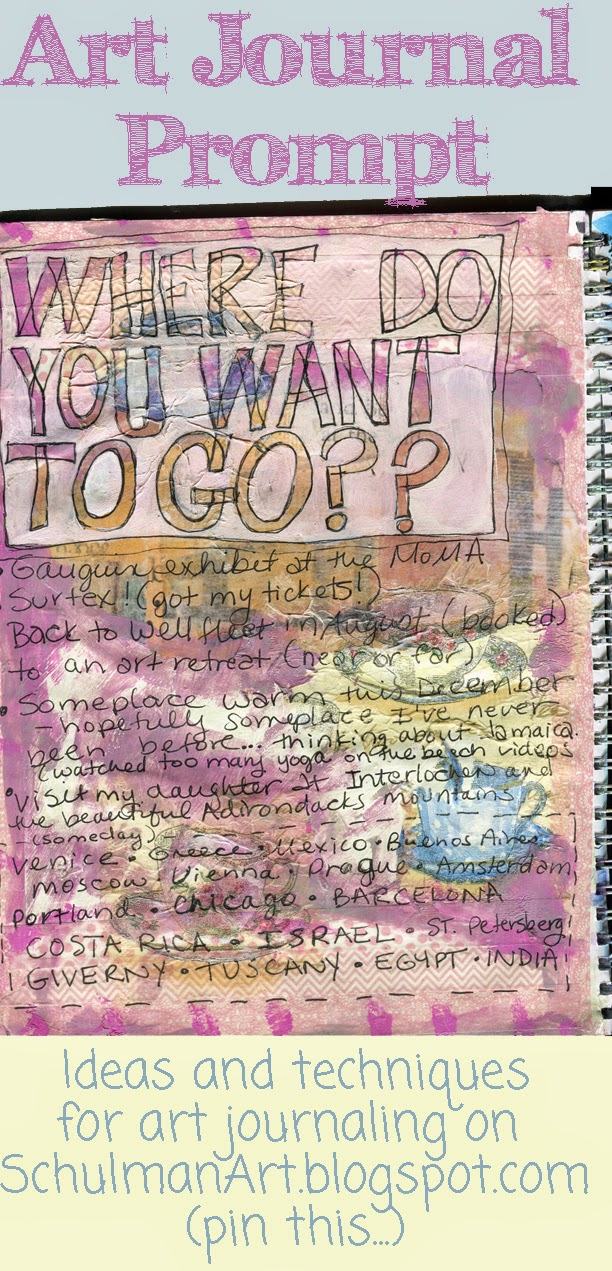 Art Journal
Prompt
WHERE DO
YOU WANT
TO GO??
• Gauguin exhibit at the MoMA
• Surtex! (got my tickets!)
Back to Wellfleet in August (booked)
to an art retreat (near or far)
• Someplace warm this December
- hopefully someplace I've never
been before... thinking about Jamaica.
(watched too many yoga on the beach videos
• Visit my daughter at Interlochen and
the beautiful Adirondacks mountains
(someday)
Venice • Greece • Mexico • Buenos Aires
Moscow Vienna • Prague Amsterdam
Portland • Chicago • BARCELONA
COSTA RICA • ISRAEL • ST. Petersberg
GIVERNY • TUSCANY • EGYPT • INDIA
Ideas and techniques
for art journaling on
SchulmanArt.blogspot.com
(pin this...)